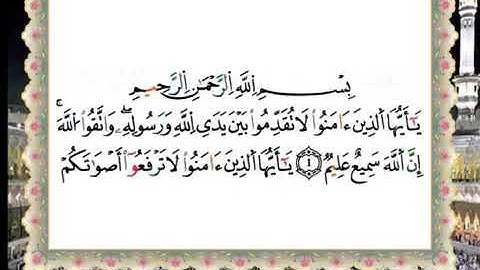 بِسْمِ اللَّهِ الرَّحْمَٰنِ الرَّحِيمِ
يَـٰٓأَيُّهَا ٱلَّذِينَ ءَامَنُوا۟ لَا تُقَدِّمُوا۟ بَيْنَ يَدَىِ ٱللَّهِ وَرَسُولِهِۦ ۖ وَٱتَّقُوا۟ ٱللَّهَ ۚ
إِنَّ ٱللَّهَ سَمِيعٌ عَلِيمٌ ۝١ يَـٰٓأَيُّهَا ٱلَّذِينَ ءَامَنُوا۟ لَا تَرْفَعُوٓا۟ أَصْوَٰتَكُمْ